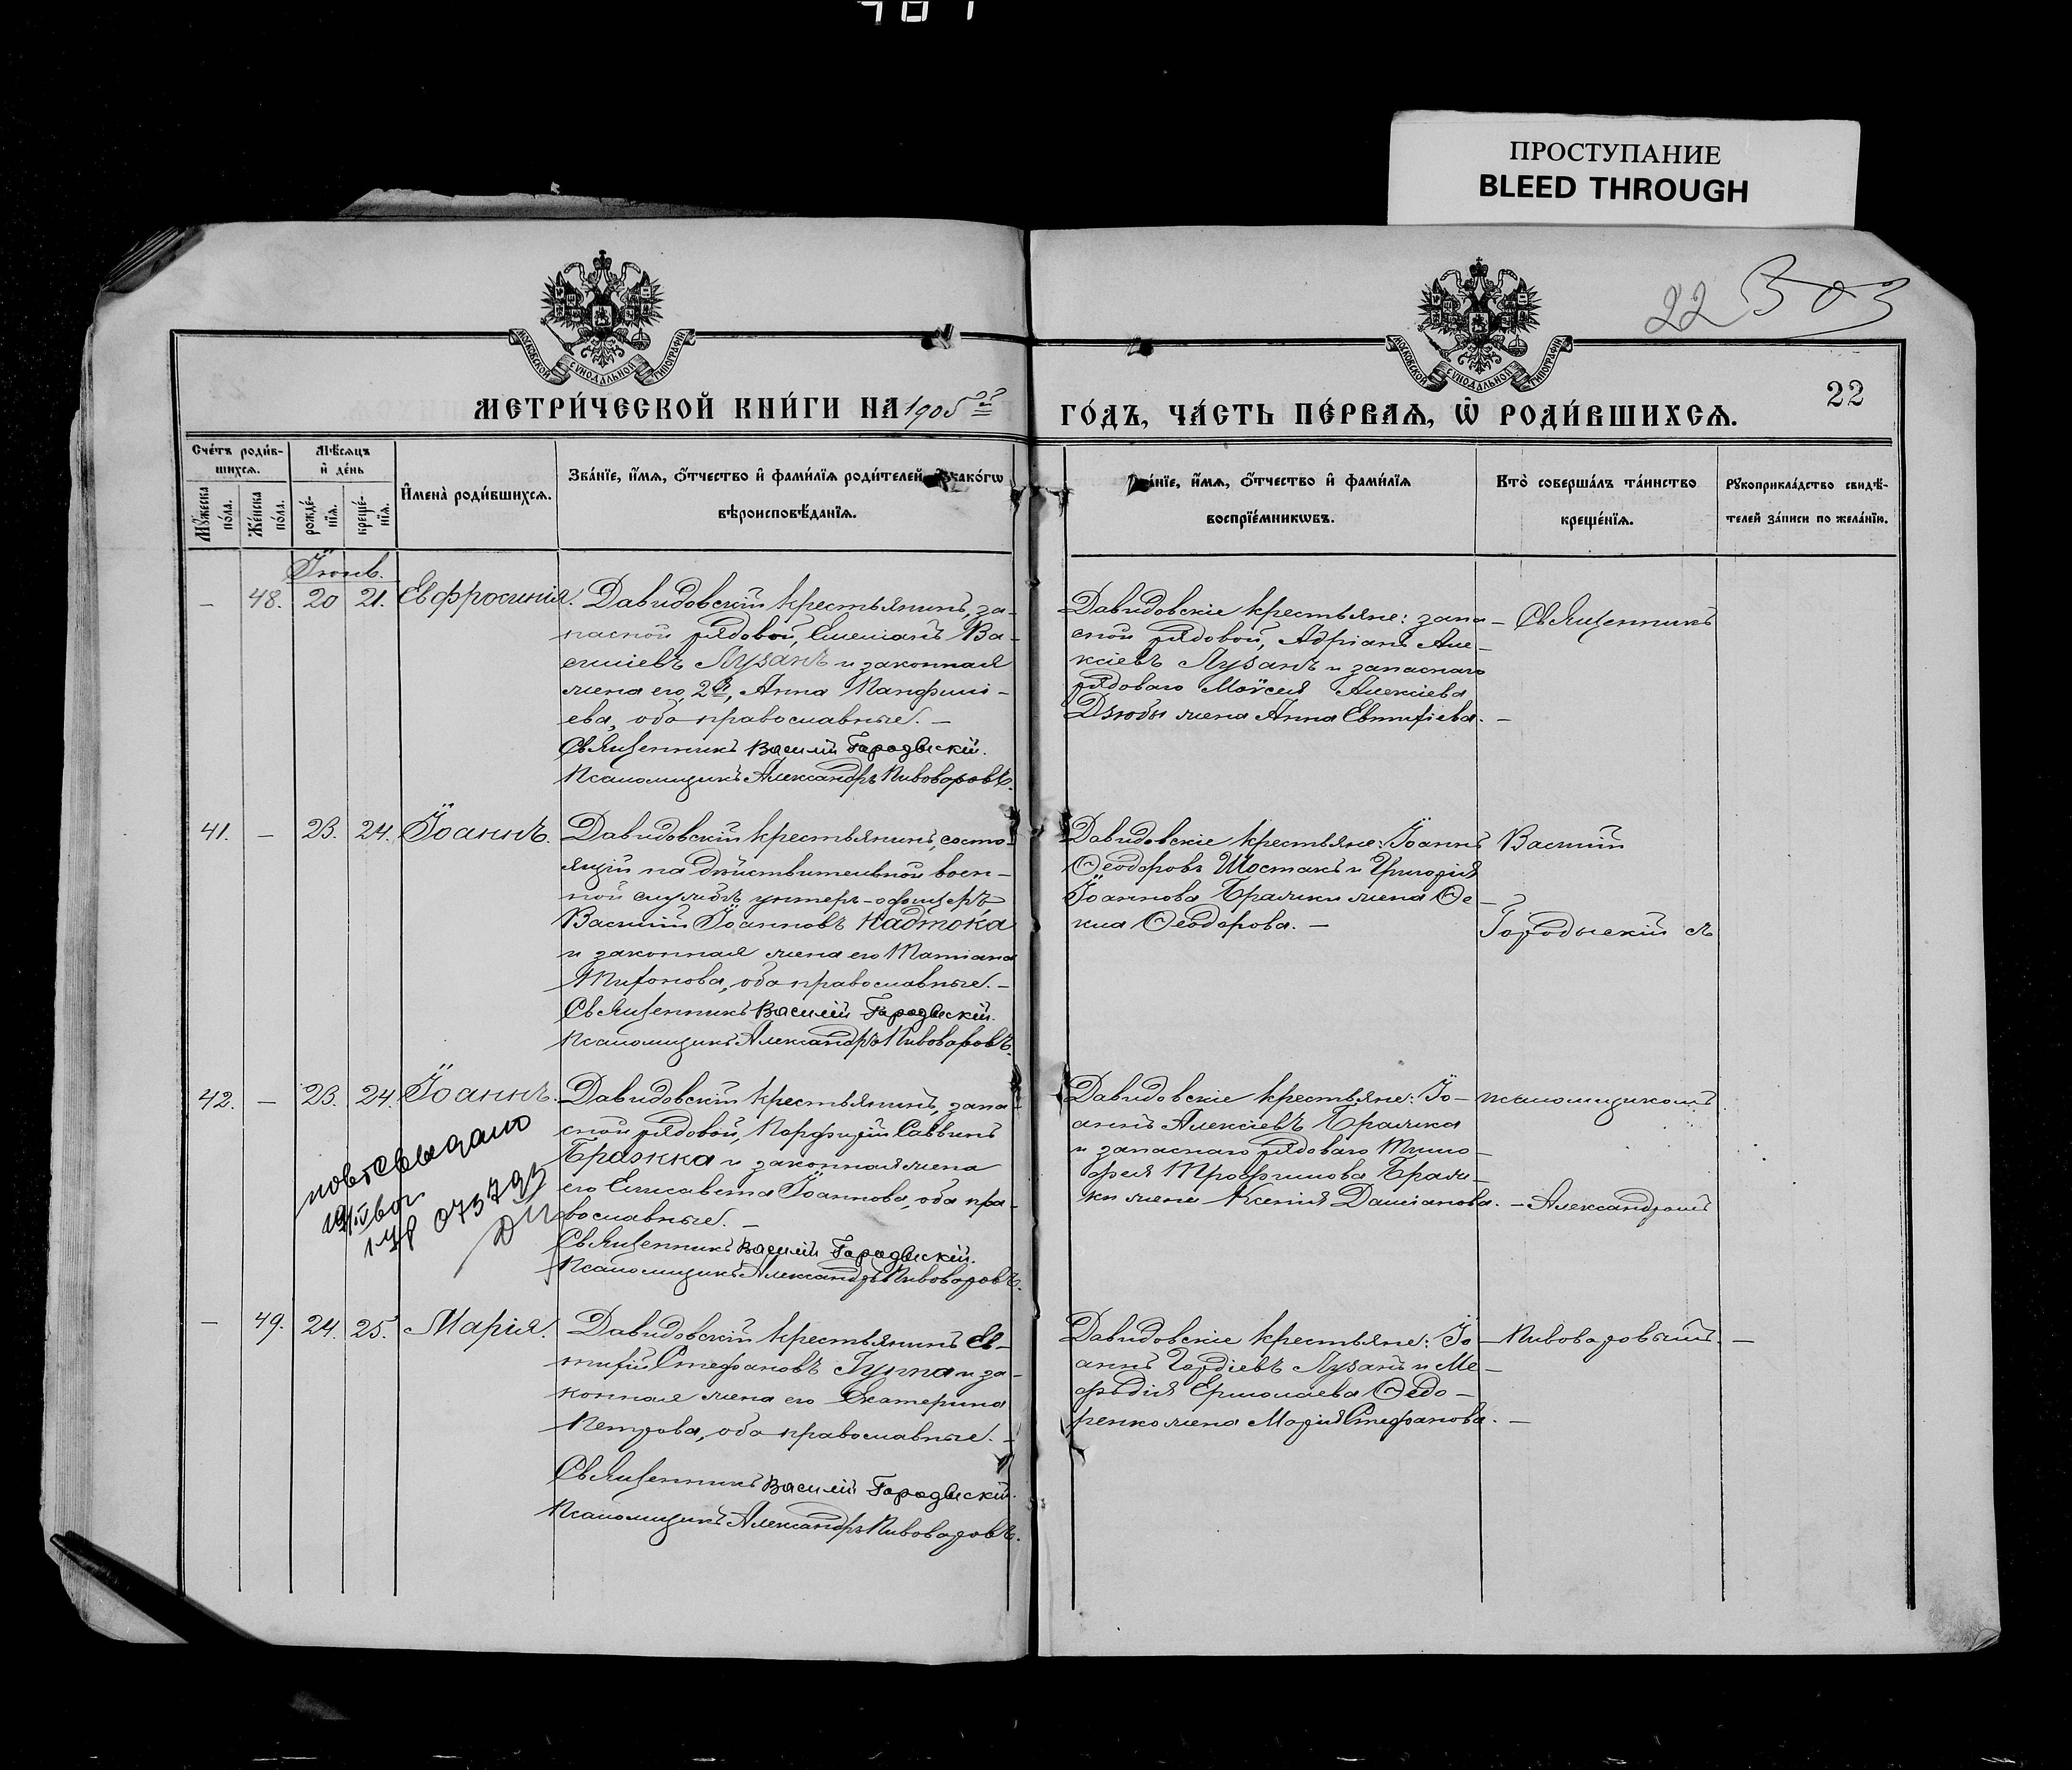 ПРОСТУПАНИЕ
BLEED THROUGH
22 303
МОСКОВСКОЙ СѴНОДАЛЬНОЙ ТИПОГРАФІИ
МОСКОВСКОЙ СѴНОДАЛЬНОЙ ТИПОГРАФІИ
22
МЕТРИ́ЧЕСКОЙ КНИ́ГИ НА 1905 й
ГО́ДЪ, ЧА́СТЬ ПЕ́РВАѦ, Ѡ҆ РОДИ́ВШИХСѦ.
Сче́тъ роди́в-
шихсѧ.
Мѣ́сѧцъ
и҆ де́нь
Мꙋ́жеска по́ла.
Же́нска по́ла.
рожде́-нїѧ.
креще́-нїѧ.
И҆мена̀ роди́вшихсѧ.
Зва́нїе, и҆́мѧ, ѻ҆́тчество и҆ фами́лїѧ роди́телей, и҆ како́гѡ
вѣроисповѣ́данїѧ.
Зва́нїе, и҆́мѧ, ѻ҆́тчество и҆ фами́лїѧ
воспрїе́мникѡвъ.
Кто̀ соверша́лъ та́инство
креще́нїѧ.
Рꙋкоприкла́дство свидѣ́-
телей за́писи по жела́нїю.
Іюнь.
— 48. 20 21. Евфросинія.
Давидовскій крестьянинъ, за-
пасной рядовой, Емеліанъ Ва-
силіевъ Лузанъ и законная
жена его, 2я, Анна Панфилі-
ева, оба православные. —
Священникъ Василій Городыскій.
Псаломщикъ Александръ Пивоваровъ.
Давидовскіе крестьяне: запа-
сной рядовой, Адріанъ Але-
ксіевъ Лузанъ и запаснаго
рядоваго Моѵсея Алексіева
Дзюбы жена Анна Евтихіева. —
Священникъ
41. — 23. 24. Іоаннъ.
Давидовскій крестьянинъ, состо-
ящій на дѣйствительной воен-
ной службѣ унтеръ-офицеръ
Василій Іоанновъ Надтока
и законная жена его Татіана
Тихонова, оба православные. —
Священникъ Василій Городыскій.
Псаломщикъ Александръ Пивоваровъ.
Давидовскіе крестьяне: Іоаннъ
Ѳеодоровъ Шостакъ и Григорія
Іоаннова Бражки жена Ѳе-
кла Ѳеодорова. —
Василій
Городыскій съ
42. — 23. 24. Іоаннъ.
Давидовскій крестьянинъ, запа-
сной рядовой, Порфирій Саввинъ
Бражка и законная жена
его Елисавета Іоаннова, оба пра-
вославные. —
Священникъ Василій Городыскій.
Псаломщикъ Александръ Пивоваровъ.
Давидовскіе крестьяне: Іо-
аннъ Алексіевъ Бражка
и запаснаго рядоваго Тимо-
фея Трофимова Браж-
ки жена Ксенія Даміанова. —
псаломщикомъ
Александромъ
— 49. 24. 25. Марія.
Давидовскій крестьянинъ Ев-
тихій Стефановъ Гуппа и за-
конная жена его Екатерина
Петрова, оба православные. —
Священникъ Василій Городыскій.
Псаломщикъ Александръ Пивоваровъ.
Давидовскіе крестьяне: Іо-
аннъ Гордіевъ Лузанъ и Ме-
фодія Ермолаева Ѳедо-
ренко жена Марія Стефанова. —
Пивоваровымъ. —